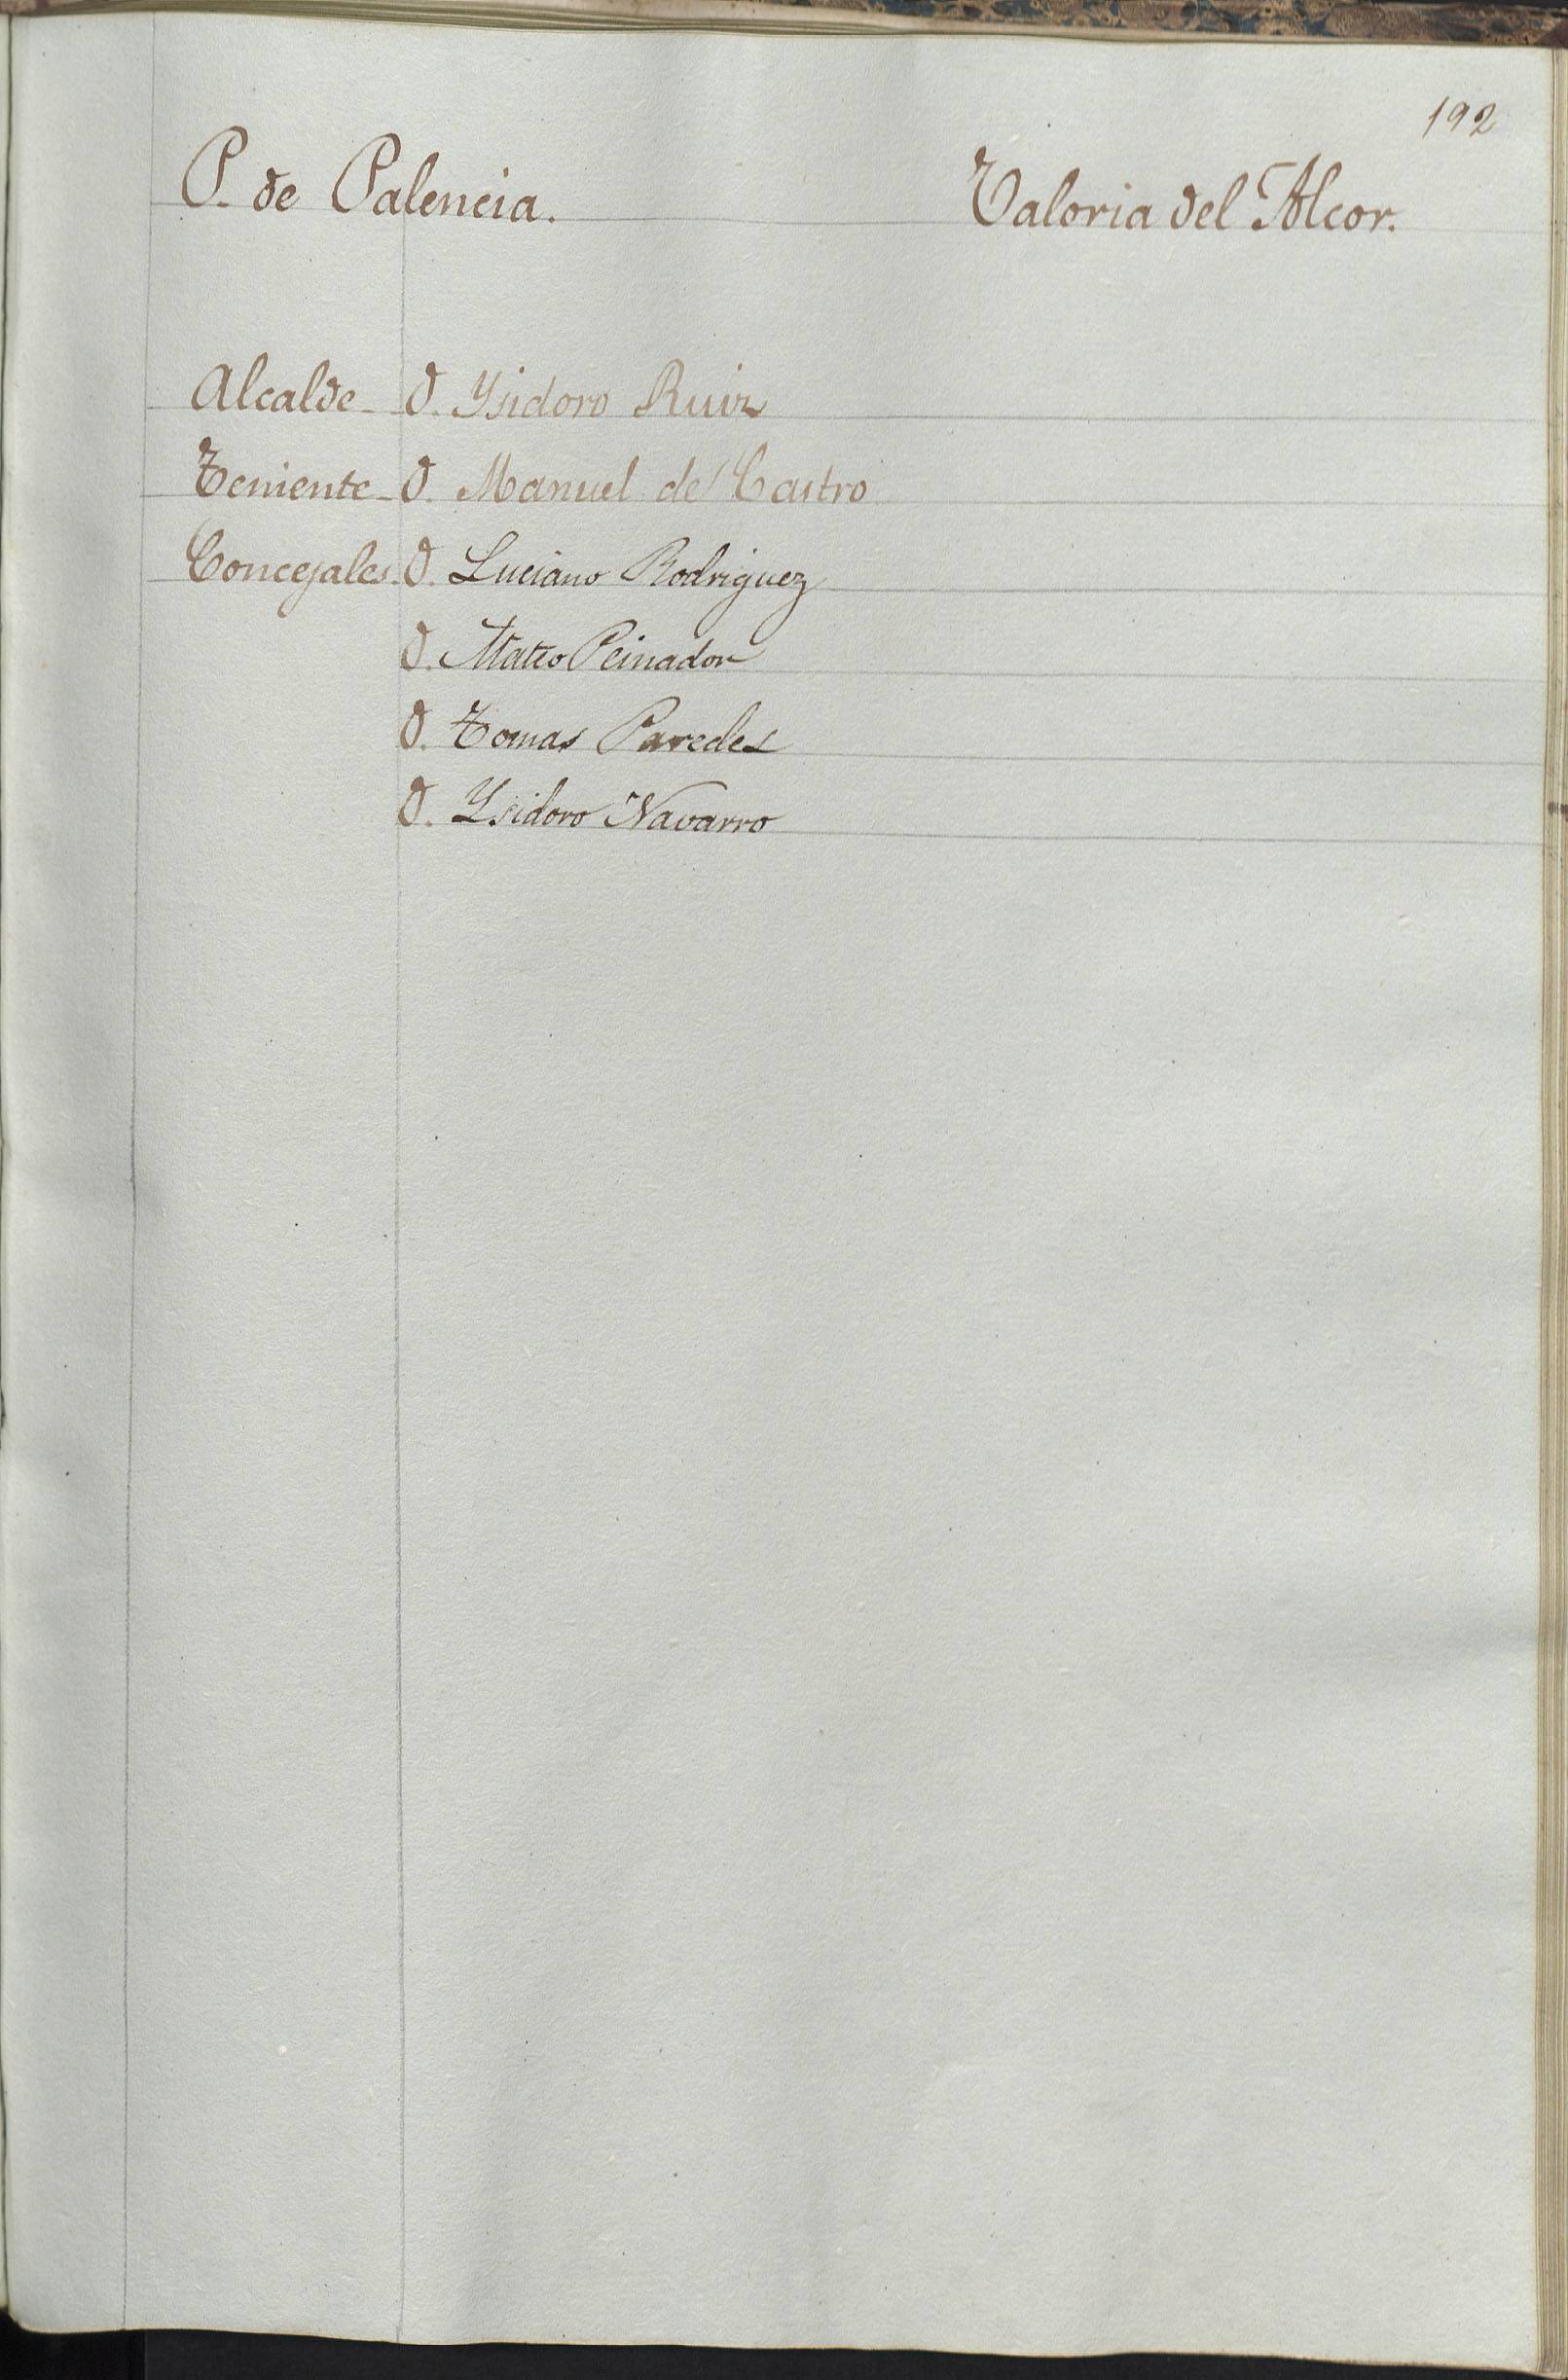 192
P. de Palencia.
Valoria del Alcor.
Alcalde D. Ysidoro Ruiz
Teniente D. Manuel de Castro
Concejales D. Luciano Rodriguez
D. Mateo Peinador
D. Tomas Paredes
D. Ysidoro Navarro